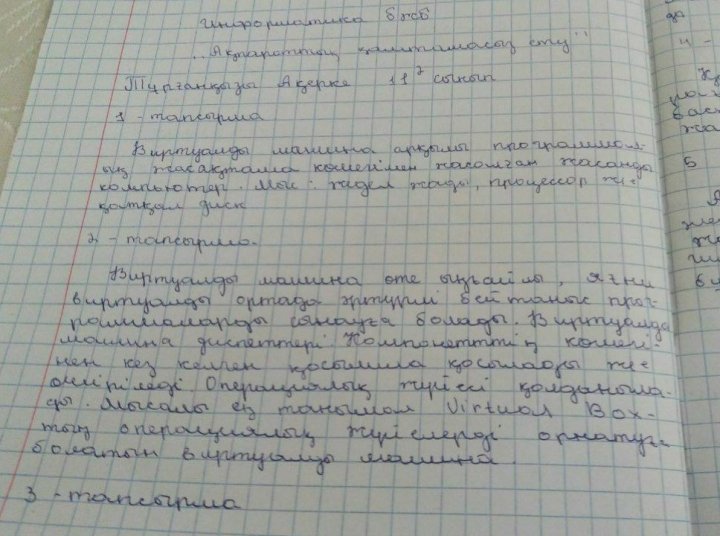 Информатика БЖБ
"Ақпараттық қамтамасыз ету"
Тұрғанқызы Ақерке 11 сынып
1 - тапсырма
Виртуалды машина арқылы программал-
ық жасақтама көмегімен жасалған жасанды
компьютер. Мыс: жедел жады, процессор же
қатқал диск
2 - тапсырма.
Виртуалды машина өте ыңғайлы, яғни
виртуалды ортада әртүрлі бейтаныс прог-
раммаларды сынауға болады. Виртуалды
машина диспетчері Компонеттің көмегі-
нен кез келген қосымша қосылады же
өшіріледі Операциялық жүйесі қолданыла-
ды. Мысалы ең танымал Virtual Box-
тың операциялық жүйелерді орнатуға
болатын виртуалды машина.
3 - тапсырма
қа
Қ
бас
жа
5